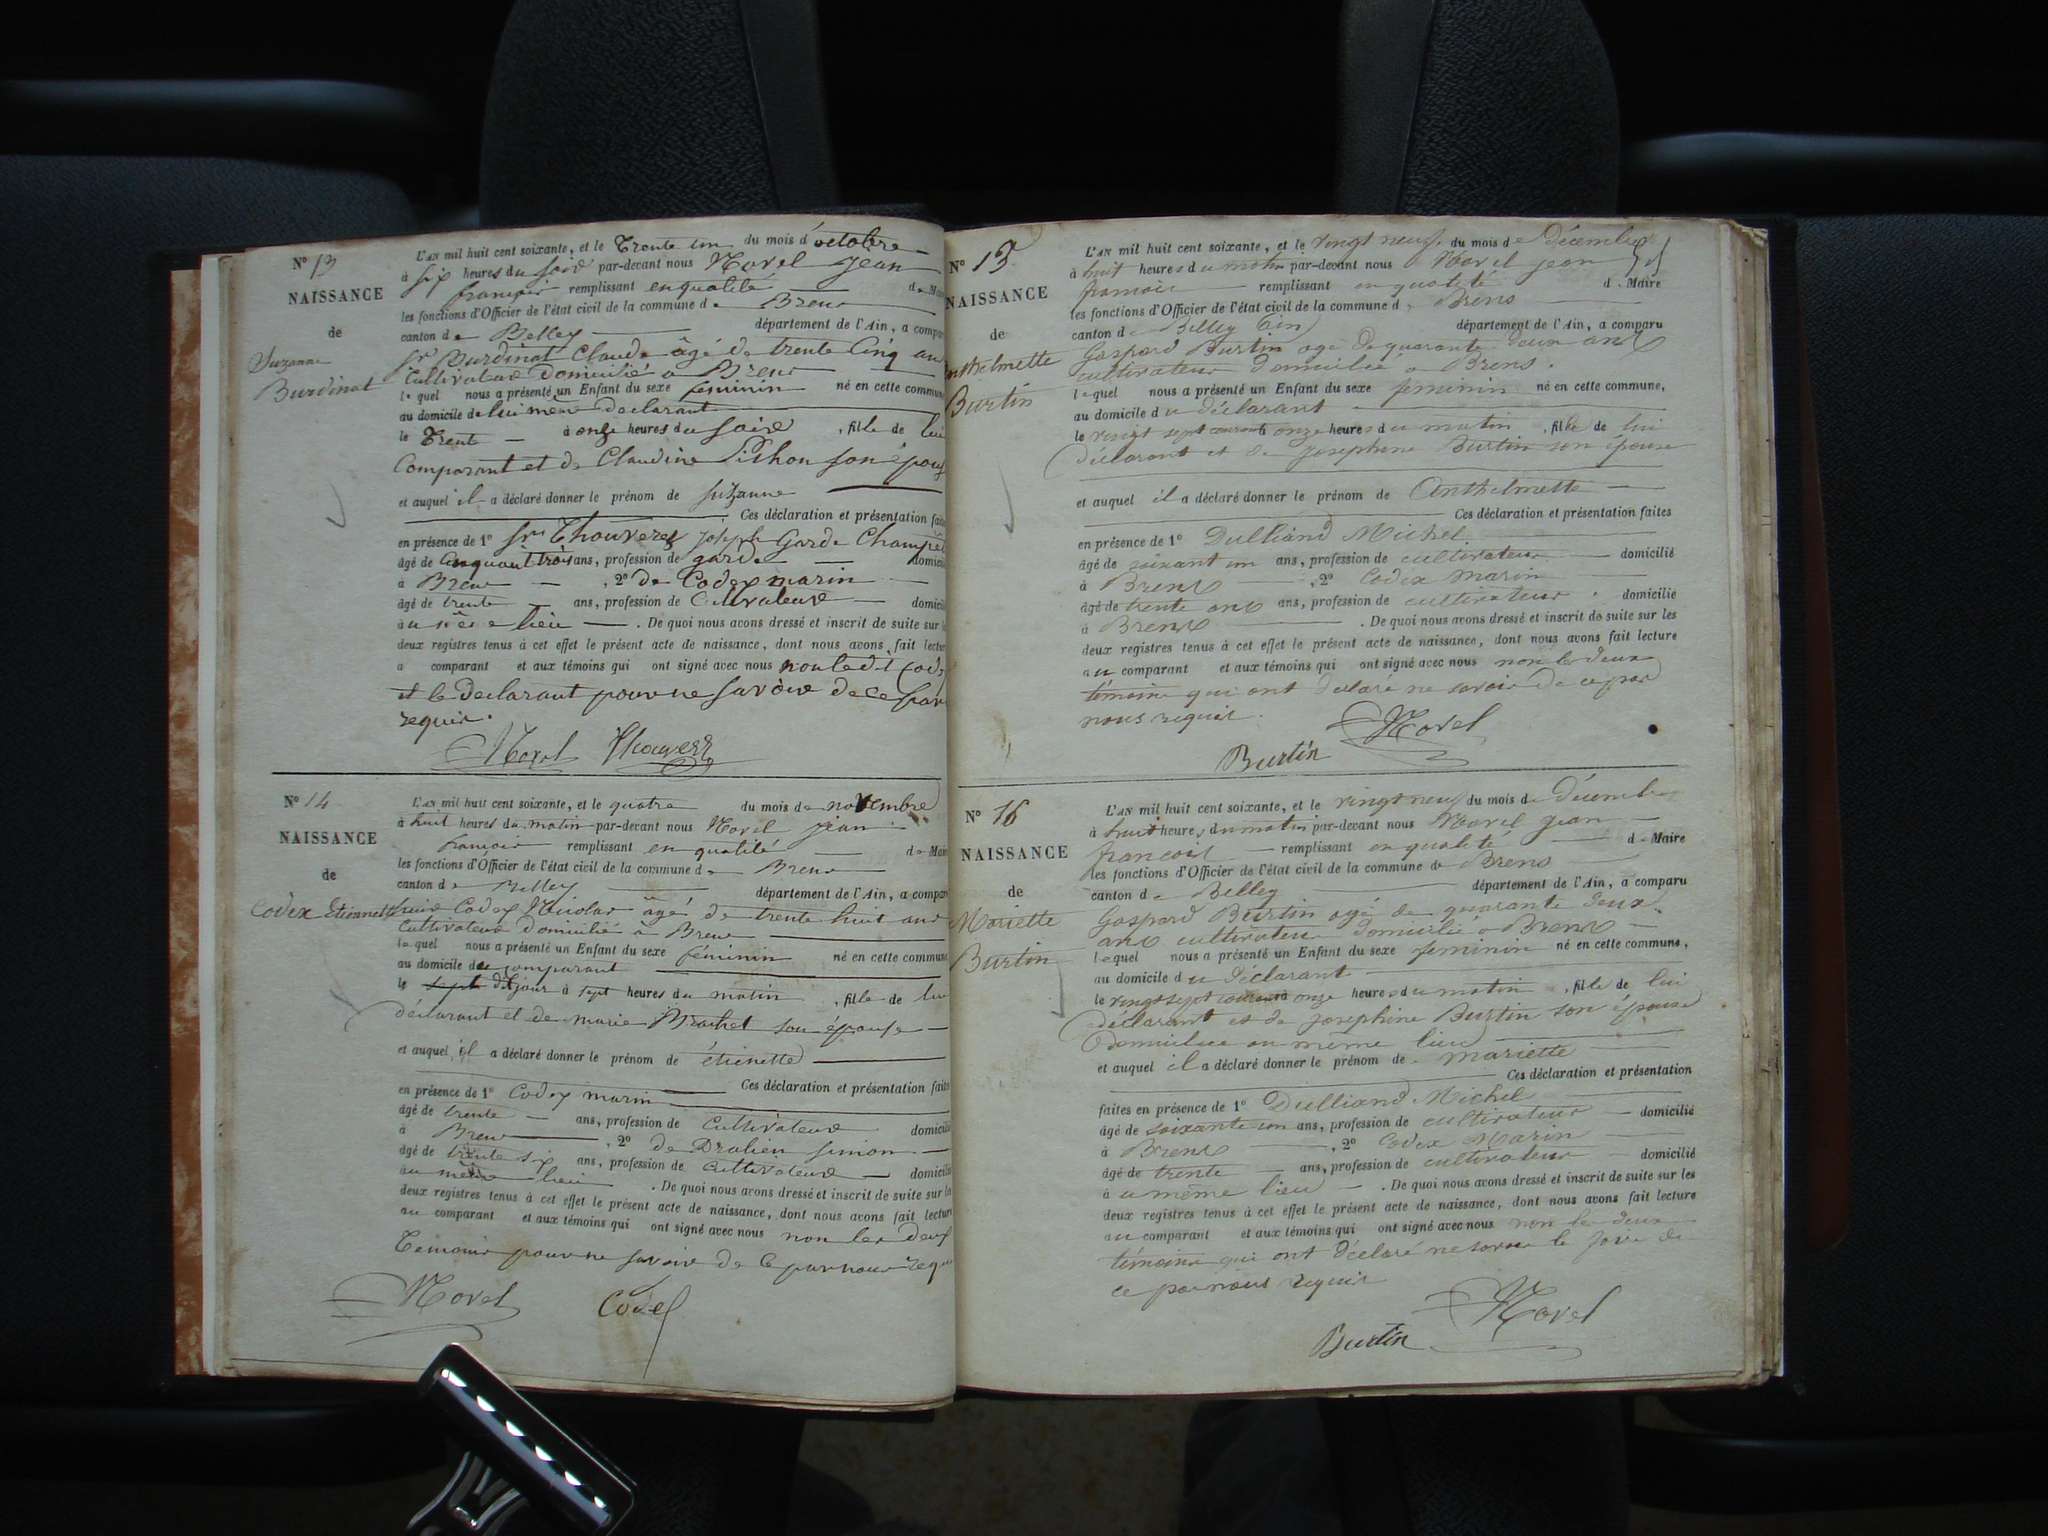 N° 13
NAISSANCE
de
Suzanne
Burdinat
L'AN mil huit cent soixante, et le Trente un du mois d'octobre
à six heures du soire par-devant nous Morel jean
françois remplissant en qualité de Mai
les fonctions d'Officier de l'état civil de la commune de Brens
canton de Belley département de l'Ain, a compar
Sr Burdinat Claude âgé de trente Cinq an
Cultivateur Domicilié a Brens
lequel nous a présenté un Enfant du sexe féminin né en cette commune
au domicile de lui même declarant
le Trente à onze heures du soire , fille de lui
Comparant et de Claudine Pishon son épous
et auquel il a déclaré donner le prénom de suzanne
Ces déclaration et présentation faite
en présence de 1° Sr Thouverez joseph Garde Champêt
âgé de Cinquante trois ans, profession de garde domicili
à Brens , 2° de Codex marin
âgé de trente ans, profession de Cultivateur domicili
au même lieu . De quoi nous avons dressé et inscrit de suite sur l
deux registres tenus à cet effet le présent acte de naissance, dont nous avons fait lectur
a comparant et aux témoins qui ont signé avec nous non ledit Cod
et le declarant pour ne savoire de ce par
requis.
Morel Thouverez
N° 14
NAISSANCE
de
Codex Etiennette
L'AN mil huit cent soixante, et le quatre du mois de novembre
à huit heures du matin par-devant nous Morel jean
françois remplissant en qualité de Mair
les fonctions d'Officier de l'état civil de la commune de Brens
canton de Belley département de l'Ain, a compar
Codex Nicolas âgé de trente huit ans
Cultivateur Domicilié a Brens
lequel nous a présenté un Enfant du sexe féminin né en cette commune
au domicile de comparant
le sept dit jour à sept heures du matin , fille de lui
déclarant et de marie Brachet son épouse
et auquel il a déclaré donner le prénom de étienette
Ces déclaration et présentation faites
en présence de 1° Codex marin
âgé de trente ans, profession de Cultivateur domicilié
à Brens , 2° de Dralien simon
âgé de trente six ans, profession de Cultivateur domicilié
au même lieu . De quoi nous avons dressé et inscrit de suite sur les
deux registres tenus à cet effet le présent acte de naissance, dont nous avons fait lecture
au comparant et aux témoins qui ont signé avec nous non les deux
Temoins pour ne savoire de Ce par nous requ
Morel Codex
N° 15
NAISSANCE
de
Anthelmette
Burtin
L'AN mil huit cent soixante, et le vingt neuf du mois de décembre
à huit heures du matin par-devant nous Morel jean
francois remplissant en qualité de Maire
les fonctions d'Officier de l'état civil de la commune d Brens
canton de Belley (ain) département de l'Ain, a comparu
Gaspard Burtin agé de quarante deux ans
cultivateur domicilié a Brens.
lequel nous a présenté un Enfant du sexe feminin né en cette commune,
au domicile du déclarant
le vingt sept courant à onze heures du matin , fille de lui
déclarant et de josephine Burtin son épouse
et auquel il a déclaré donner le prénom de Anthelmette
Ces déclaration et présentation faites
en présence de 1° Dulliand Michel
âgé de soixant un ans, profession de cultivateur domicilié
à Brens , 2° Codex Marin
âgé de trente ans ans, profession de cultivateur domicilié
à Brens . De quoi nous avons dressé et inscrit de suite sur les
deux registres tenus à cet effet le présent acte de naissance, dont nous avons fait lecture
au comparant et aux témoins qui ont signé avec nous non les deux
témoins qui ont declaré ne savoir de ce par
nous requis.
Morel
Burtin
N° 16
NAISSANCE
de
Mariette
Burtin
L'AN mil huit cent soixante, et le vingt neuf du mois de Décembre
à huit heures du matin par-devant nous Morel jean
francois remplissant en qualité de Maire
les fonctions d'Officier de l'état civil de la commune de Brens
canton de Belley département de l'Ain, a comparu
Gaspard Burtin agé de quarante deux
ans cultivateur domicilié a Brens
lequel nous a présenté un Enfant du sexe feminin né en cette commune,
au domicile du déclarant
le vingt sept courant à onze heures du matin , fille de lui
déclarant et de josephine Burtin son épouse
Domiciliee au même lieu
et auquel il a déclaré donner le prénom de mariette
Ces déclaration et présentation
faites en présence de 1° Dulliand Michel
âgé de soixante un ans, profession de cultivateur domicilié
à Brens , 2° Codex Marin
âgé de trente ans, profession de cultivateur domicilié
à u même lieu . De quoi nous avons dressé et inscrit de suite sur les
deux registres tenus à cet effet le présent acte de naissance, dont nous avons fait lecture
au comparant et aux témoins qui ont signé avec nous non les deux
témoins qui ont déclaré ne savoir le faire de
ce par nous requis
Morel
Burtin